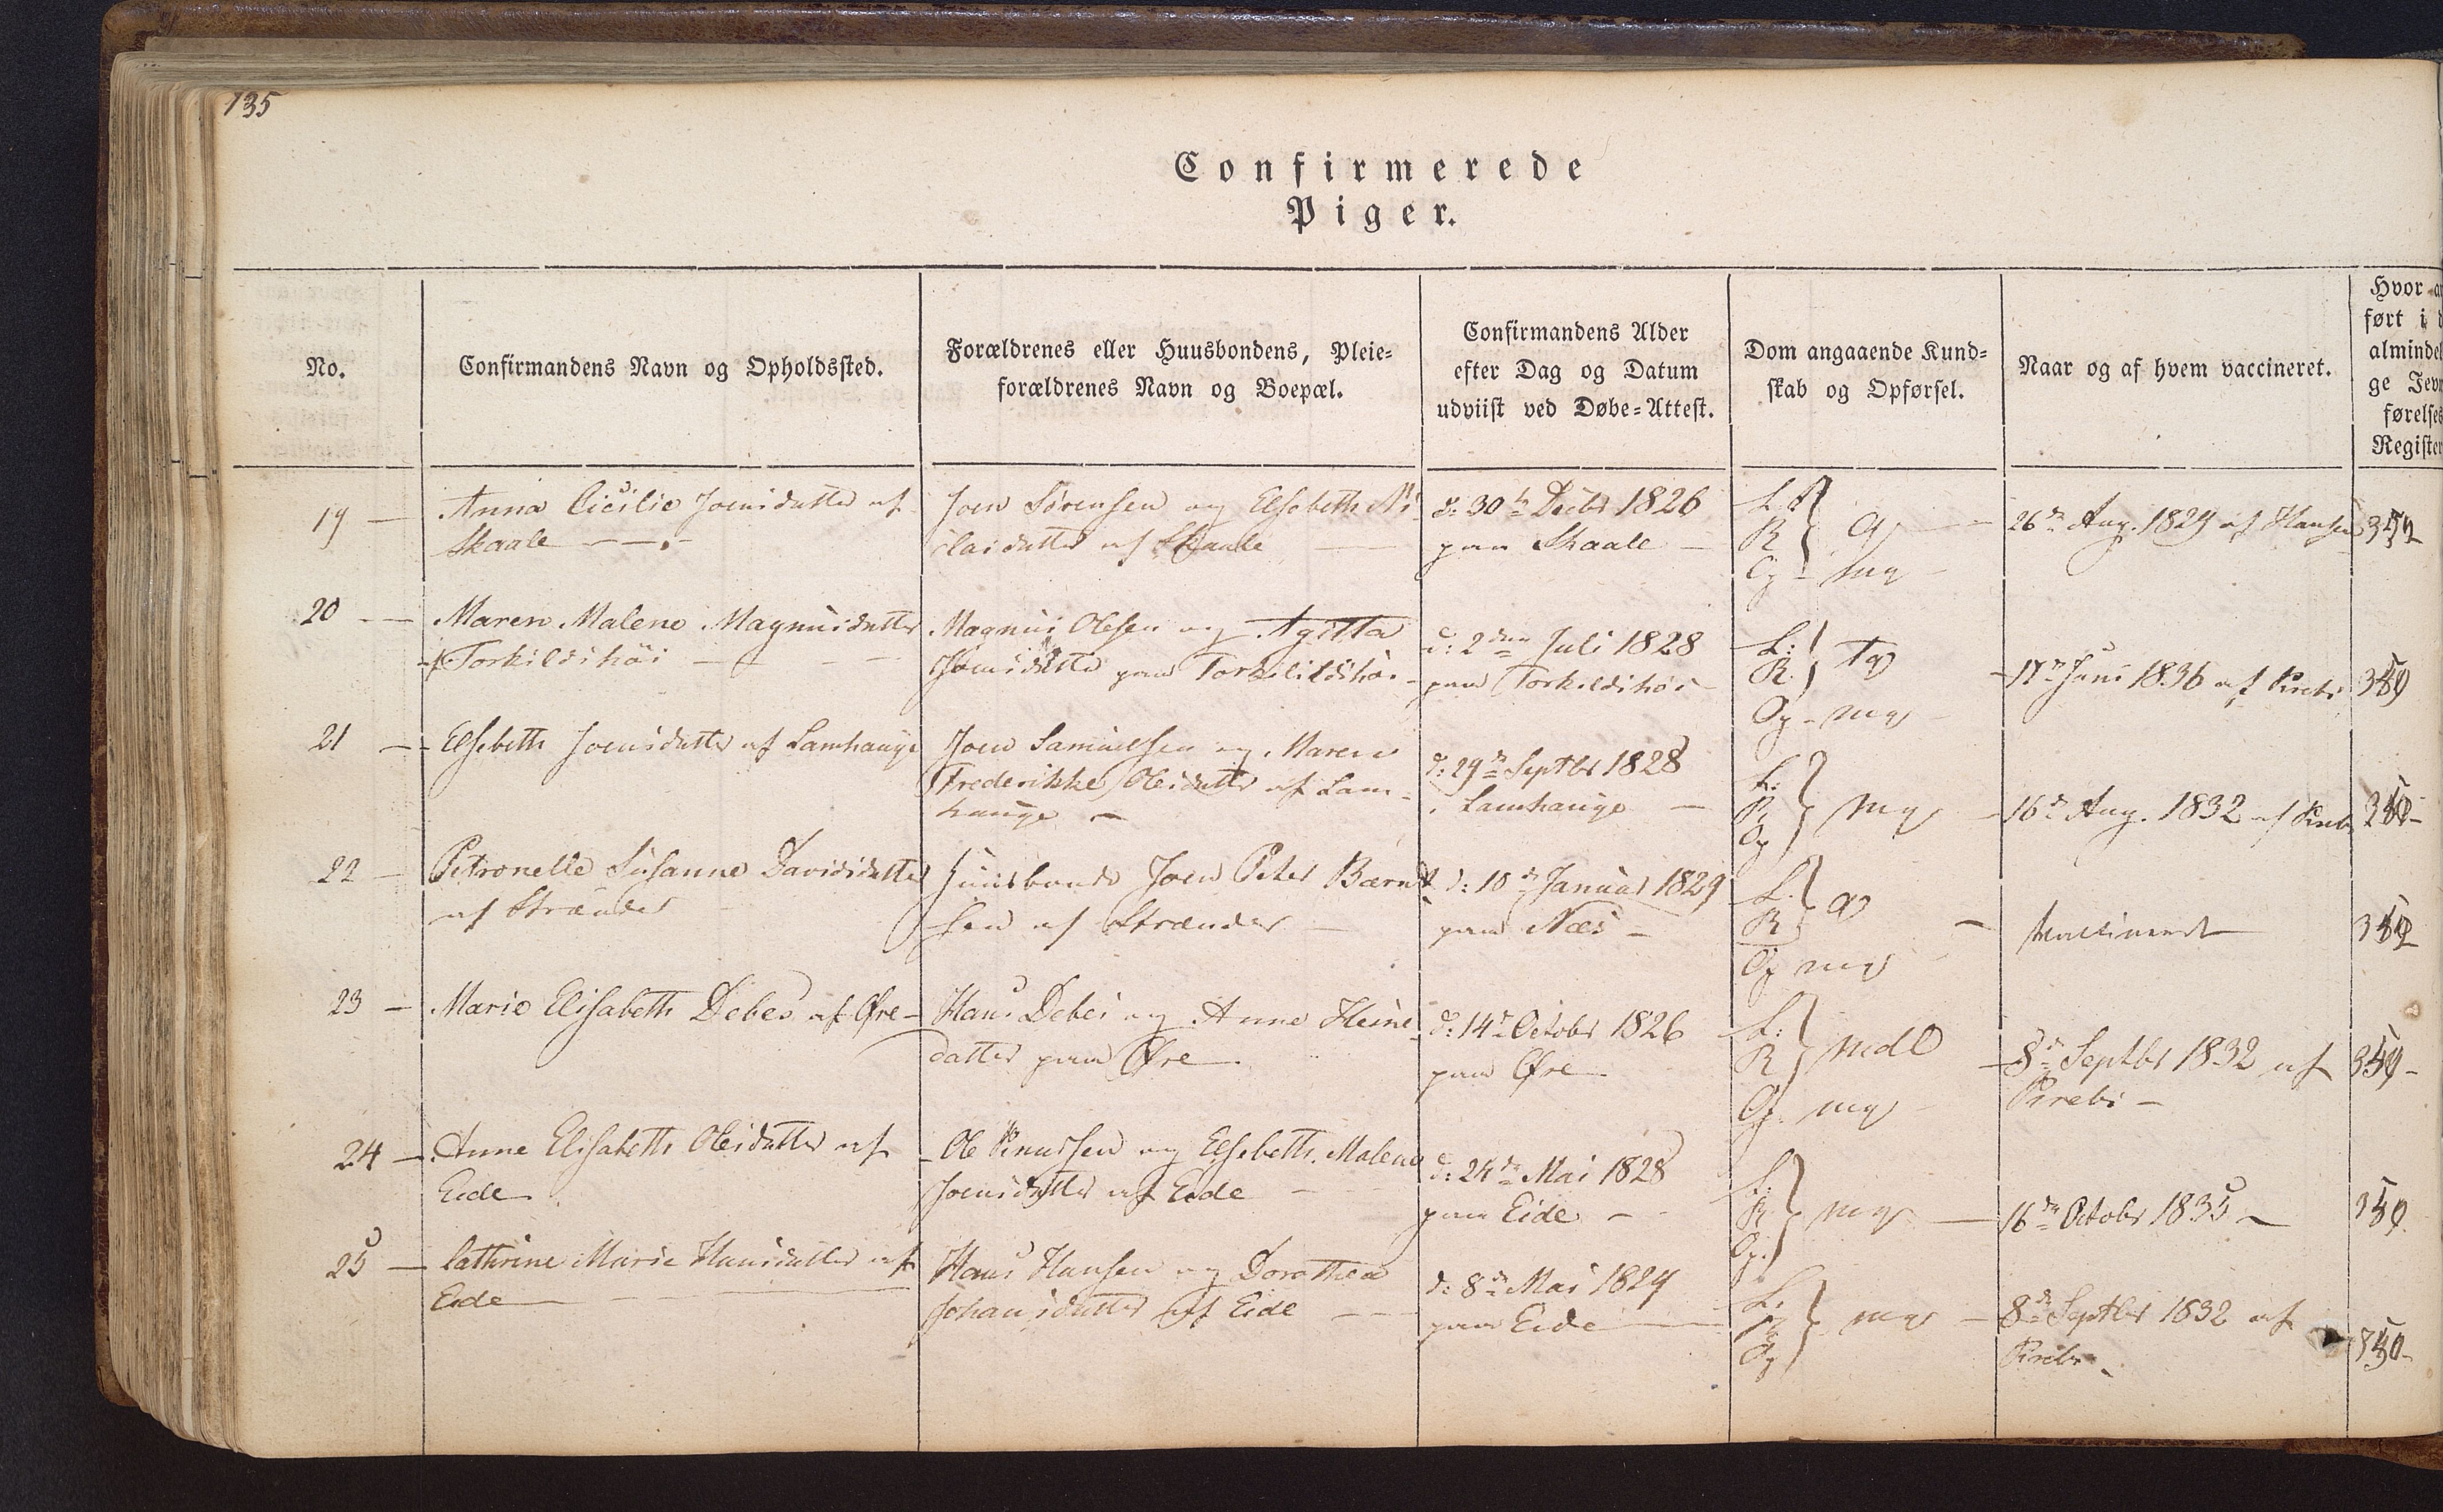 135
Confirmerede
Piger.
No.
Confirmandens Navn og Opholdssted.
Forældrenes eller Huusbondens, Pleie-
forældrenes Navn og Boepæl.
Confirmandens Alder
efter Dag og Datum
udviist ved Døbe-Attest.
Dom angaaende Kund-
skab og Opførsel.
Naar og af hvem vaccineret.
Hvor an
ført i d
almindel
ge Jevn
førelses
Register
19 —
Anna Cicilie Joensdatter af
Skaale
Joen Sørensen og Elsebeth Ni-
claidatter af Skaale
d: 30te Decbr 1826
paa Skaale —
L.
R
Og
g
mg
26de Aug. 1829 af Hansen
20 —
Maren Malene Magnusdatter
af Torkildshöi
Magnus Olesen og Agitta
Joensdatter paa Torkilildshöi
d: 2den Juli 1828
paa Torkildshöi
L:
R.
Og - mg
tg
17de Juni 1836 af
359
21 —
Elsebeth Joensdatter af Lamhauge
Joen Samuelsen og Maren
Frederikke Olesdatter af Lam-
hauge —
d: 29de Septbr 1828
i Lamhauge —
L:
R
Og
mg
16de Aug. 1832 af
22 —
Petronelle Susanne Davidsdatter
af Strænder
Huusbonde Joen Peter Bærent-
sen af Strænder
d: 10de Januar 1829
paa Næs —
L.
R
g
Og mg
Vaccineret
23 —
Marie Elisabeth Debes af Øre
Hans Debes og Anne Heine-
datter paa Øre
d: 14de Octobr 1826
paa Øre
L:
R
mdl
Og mg
8de Septbr 1832 af
359
24 —
Anne Elisabeth Olesdatter af
Eide
Ole Knudsen og Elsebeth Malene
Joensdatter af Eide
d: 24de Mai 1828
paa Eide —
L:
R
Og.
mg
16de Octobr 1835 —
359
25 —
Cathrine Marie Hansdatter af
Eide
Hans Hansen og Dorothea
Johansdatter af Eide
d: 8de Mai 1829
paa Eide
L:
R
Og
mg
8de Septbr 1832 af